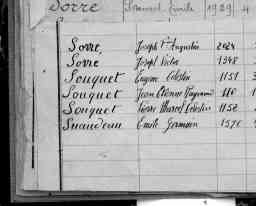 Sorre Emile 1929 4
Sorre, Joseph Augustin 2024
Sorre Joseph Victor 1348
Souquet Eugène Célestin 1151
Souquet Jean Etienne 110
Souquet Pierre Marcel Célestin 1152
Suaudeau Emile Germain 1570